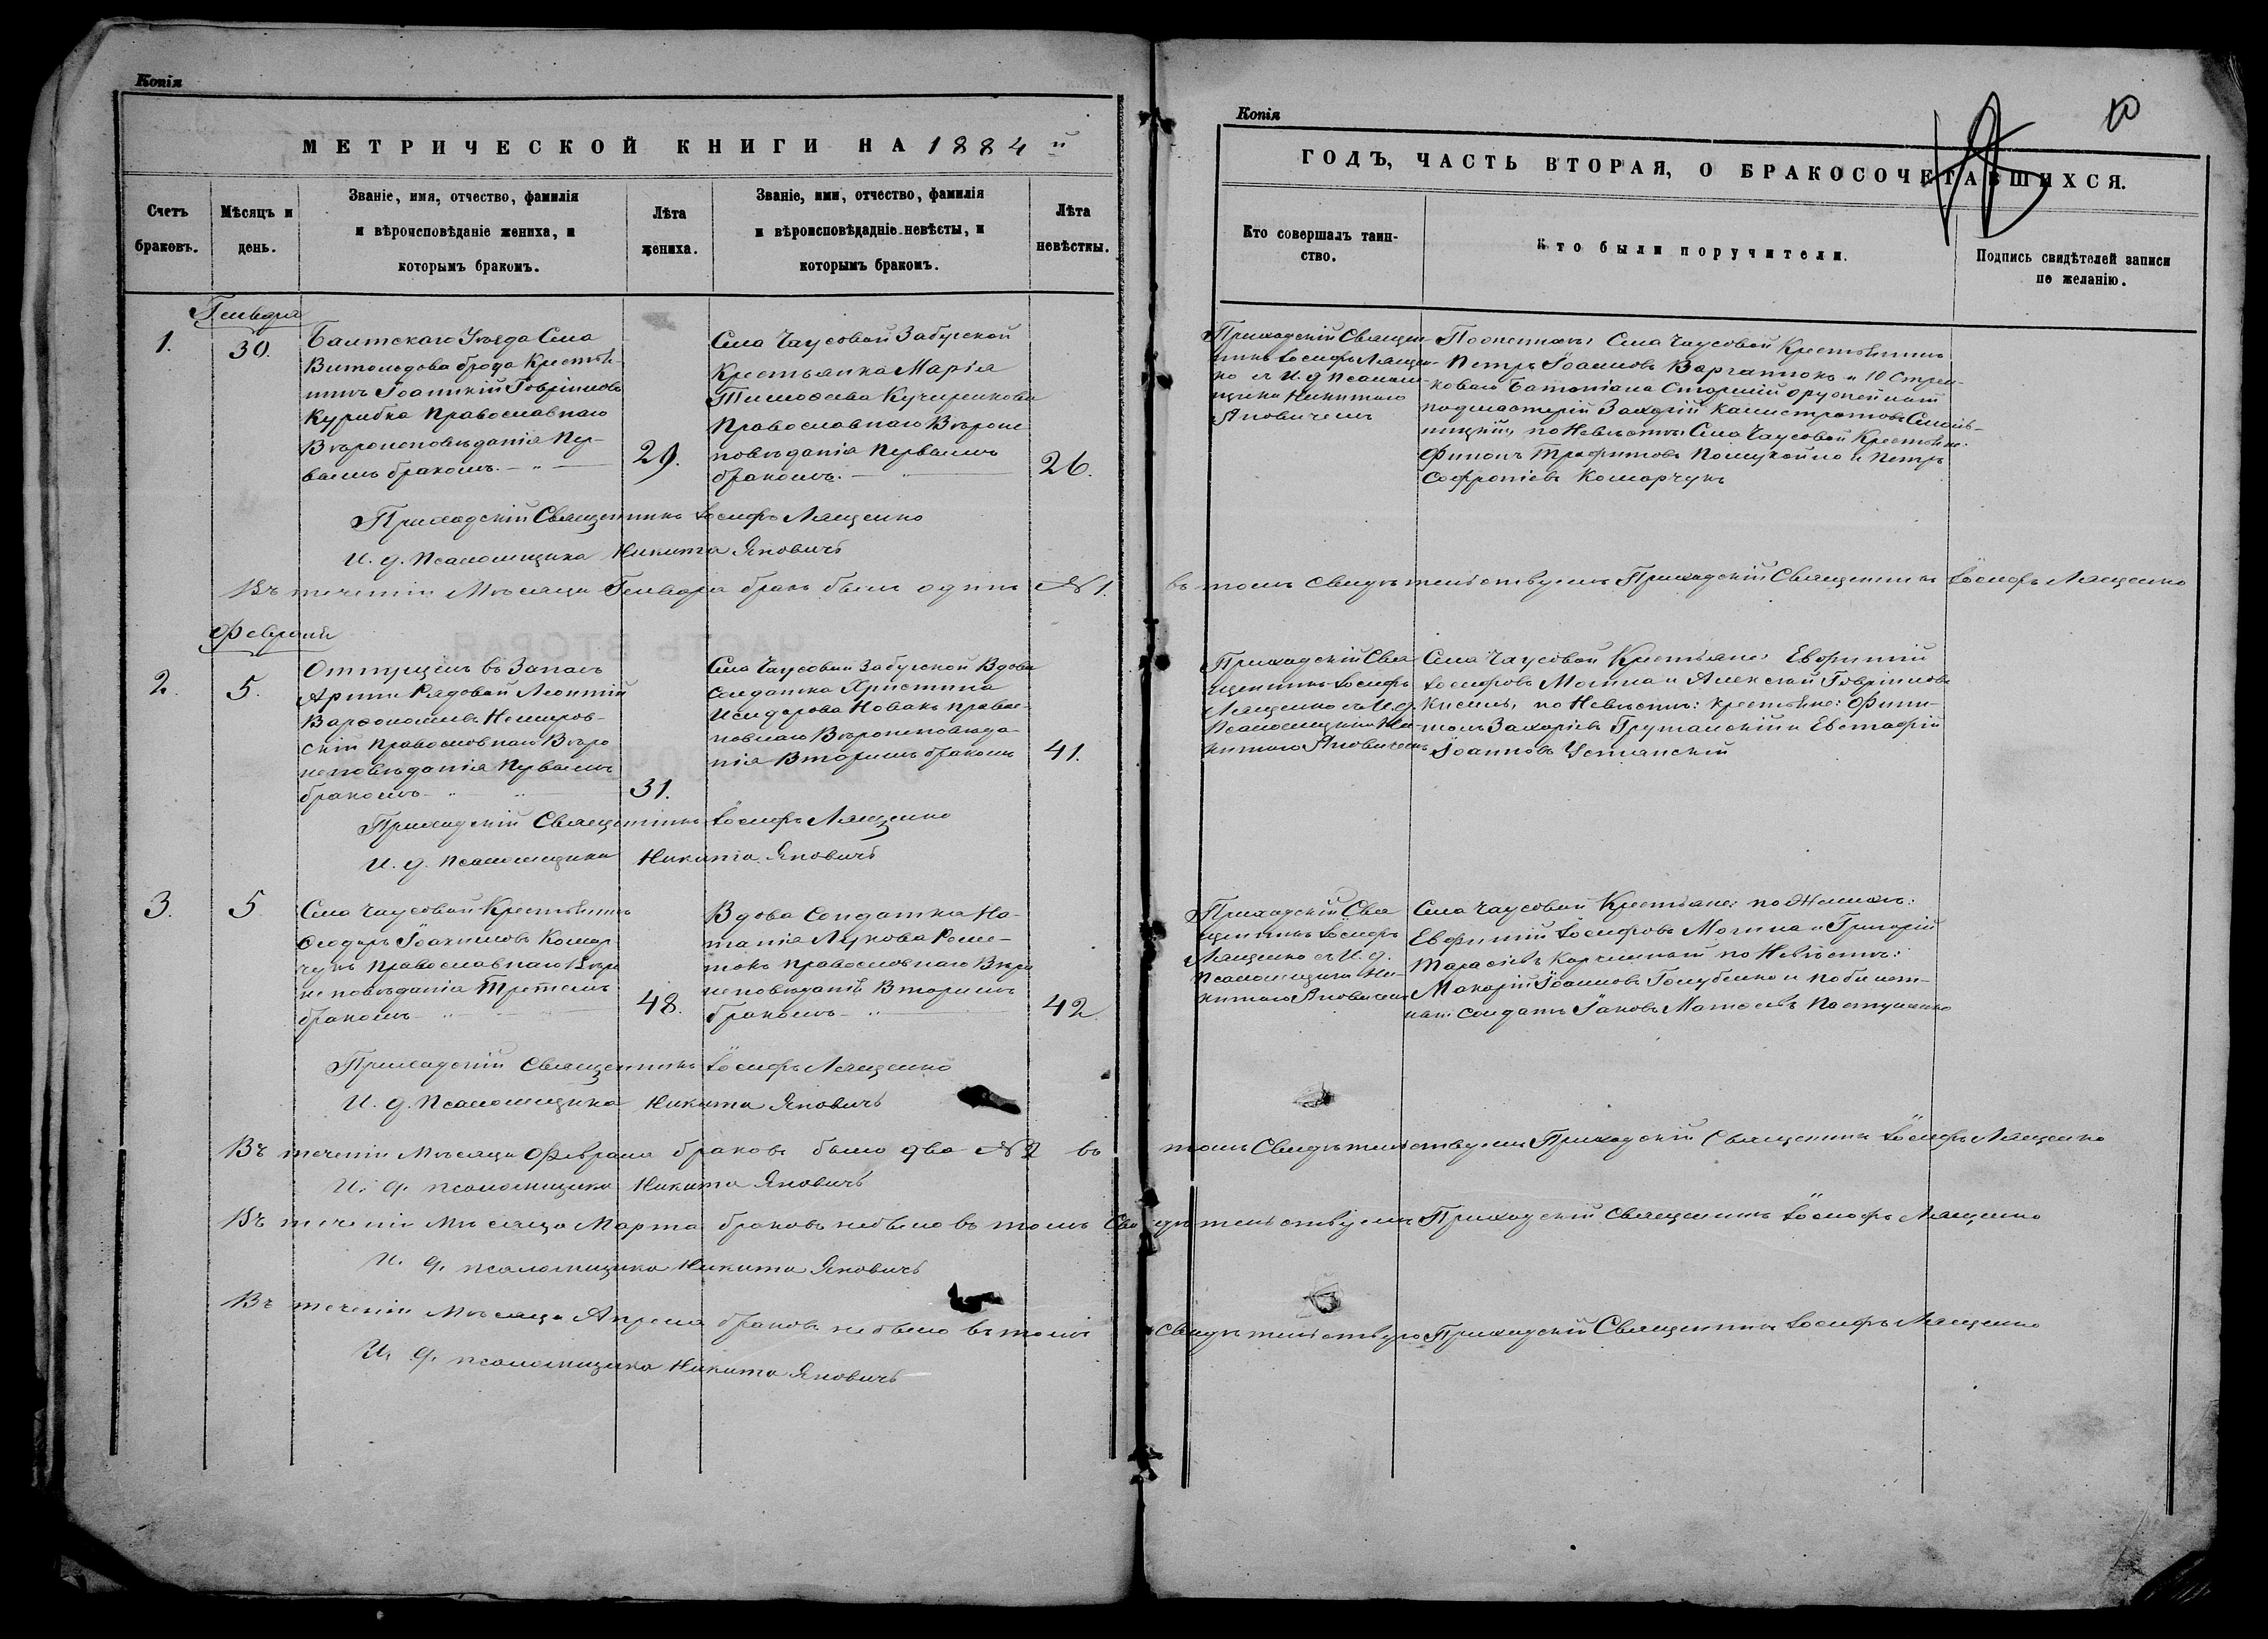 Копія
МЕТРИЧЕСКОЙ КНИГИ НА 1884 й
Счетъ
браковъ.
Мѣсяцъ и
день.
Званіе, имя, отчество, фамилія
и вѣроисповѣданіе жениха, и
которымъ бракомъ.
Лѣта
жениха.
Званіе, имя, отчество, фамилія
и вѣроисповѣдадніе невѣсты, и
которымъ бракомъ.
Лѣта
невѣстны.
Генваря
1.
30.
Балтскаго Уѣзда Села
Витольдова брода Крестья-
нинъ Іоанникій Гавріиловъ
Курибка Православнаго
Вѣроисповѣданія Пер-
вымъ бракомъ.
29.
Села Чаусовой Забугской
Крестьянка Марія
Тимофеева Кучеренкова
Православнаго Вѣроис
повѣданія Первымъ
бракомъ.
26.
Приходскій Священникъ Іосифъ Лященко
И. д. Псаломщика Никита Яновичъ
Въ теченіи Мѣсяца Генваря бракъ былъ одинъ № 1.
Февраля
2.
5.
Отпущенъ въ Запасъ
Арміи Рядовой Леонтій
Варфоломеевъ Немиров-
скій Православнаго Вѣро
исповѣданія Первымъ
бракомъ
31.
Села Чаусовой Забугской Вдова
Солдатка Христина
Исидорова Новакъ Правос-
лавнаго Вѣроисповѣда-
нія Вторымъ бракомъ
41.
Приходскій Священникъ Іосифъ Лященко
И. д. Псаломщика Никита Яновичъ
3.
5
Села Чаусовой Крестьянинъ
Феодоръ Іоакимовъ Комар-
чукъ Православнаго Вѣро
исповѣданія Третьимъ
бракомъ
48.
Вдова Солдатка На-
талія Лукова Реше-
токъ Православнаго Вѣро
исповѣданія Вторымъ
бракомъ
42
Приходскій Священникъ Іосифъ Лященко
И. д. Псаломщика Никита Яновичъ
Въ теченіи Мѣсяца Февраля браковъ было два № 2 въ
И. д. псаломщика Никита Яновичъ
Въ теченіи Мѣсяца Марта браковъ небыло въ томъ Сви
И. д. псаломщика Никита Яновичъ
Въ теченіи Мѣсяца Апреля браковъ небыло въ томъ
И. д. псаломщика Никита Яновичъ
Копія
10
ГОДЪ, ЧАСТЬ ВТОРАЯ, О БРАКОСОЧЕТАВШИХСЯ.
Кто совершалъ таин-
ство.
Кто были поручители.
Подпись свидѣтелей записи
по желанію.
Приходскій Священ-
никъ Іосифъ Лящен-
ко съ И. д Псалом-
щика Никитою
Яновичемъ
По женихѣ: Села Чаусовой Крестьянинъ
Петръ Іоанновъ Варганюкъ и 10 Стрел-
коваго Баталіона Старшій оружейный
подмастерій Захарій Калистратовъ
по Невѣстѣ: Села Чаусовой Крестьяне:
Филипъ Трофимовъ и Петръ
Софроніевъ Комарчукъ
въ томъ Свидѣтельствуемъ Приходскій Священникъ Іосифъ Лященко
Приходскій Свя
щенникъ Іосифъ
Лященко съ И. д.
Псаломщика Ни-
китою Яновичемъ
Села Чаусовой Крестьяне: Евфимій
Іосифовъ Могила и Алексѣй Гавріиловъ
Кисель, по Невѣстѣ: Крестьяне: Фили-
монъ Захаріевъ и Евстафій
Іоанновъ Устянскій
Приходскій Свя
щенникъ Іосифъ
Лященко съ И. д.
Псаломщика Ни-
китою Яновичемъ
Села Чаусовой Крестьяне: по Женихѣ:
Евфимій Іосифовъ Могила и Григорій
Тарасіевъ по Невѣстѣ:
Макарій Іоанновъ Голубенко и по билет-
ный Солдатъ Іаковъ Матѳеевъ Пастушенко
томъ Свидѣтельствуемъ Приходскій Священникъ Іосифъ Лященко
дѣтельствуемъ Приходскій Священникъ Іосифъ Лященко
Свидѣтельствую Приходскій Священникъ Іосифъ Лященко